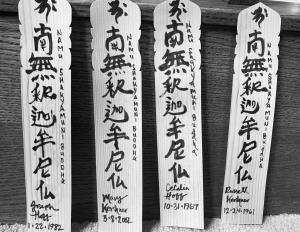 南無釈迦牟尼仏
NAMU SHAKYAMUNI BUDDHA
Joseph
Hoff
1.22.1982
南無釈迦牟尼仏
NAMU SHAKYAMUNI BUDDHA
Mary
Kershner
3-8-2002
南無釈迦牟尼仏
NAMU SHAKYAMUNI BUDDHA
Hoff
10-31-1967
南無釈迦牟尼仏
NAMU SHAKYAMUNI BUDDHA
Russell
Kershner
12-24-1961